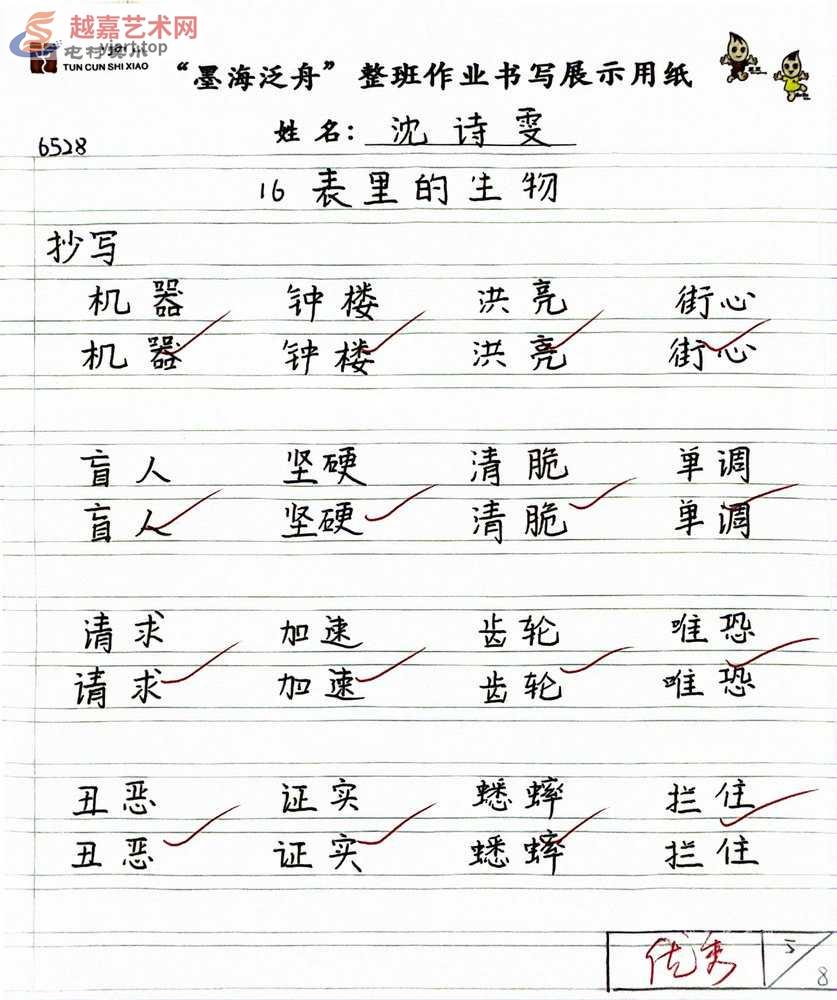 越嘉艺术网
yjart.top
TUN CUN SHI XIAO
“墨海泛舟”整班作业书写展示用纸
姓名：沈诗雯
6528
16 表里的生物
抄写
机器 钟楼 洪亮 街心
机器 钟楼 洪亮 街心
盲人 坚硬 清脆 单调
盲人 坚硬 清脆 单调
请求 加速 齿轮 唯恐
请求 加速 齿轮 唯恐
丑恶 证实 蟋蟀 拦住
丑恶 证实 蟋蟀 拦住
优秀 5/8